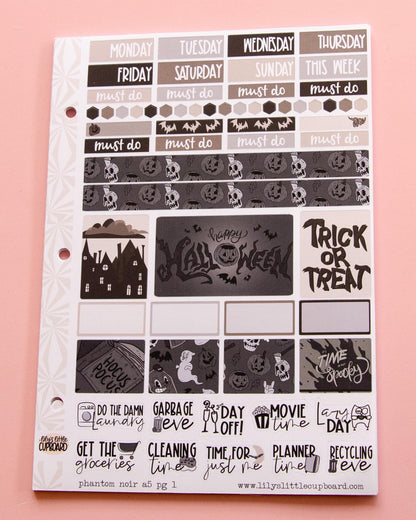 MONDAY TUESDAY WEDNESDAY THURSDAY
FRIDAY SATURDAY SUNDAY THIS WEEK
must do must do must do must do
must do must do must do must do
happy
HALLOWEEN
TRICK
OR
TREAT
HOCUS
POCUS
TIME
to get
spooky
DO THE DAMN
laundry
GARBAGE
eve
DAY
OFF!
MOVIE
time
Lazy
DAY
lily's little
CUPBOARD
GET THE
groceries
CLEANING
time
TIME FOR
just me
PLANNER
time
RECYCLING
eve
phantom noir a5 pg 1
www.lilyslittlecupboard.com